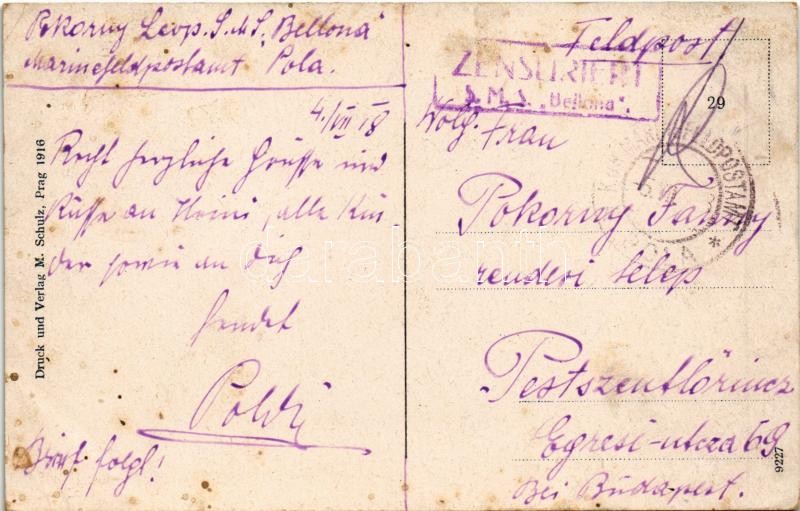 Pokorny Leop. S.M.S. „Bellona"
Marinefeldpostamt Pola.
4/VII 18
Recht herzliche Grüsse und
Küsse an Heini, alle Kin
der sowie an Dich
sendet
Poldi
Brief folgt!
Druck und Verlag M. Schulz, Prag 1916
Feldpost
ZENSURIERT
S. M. S. „Bellona".
29
Wolg. Frau
Pokorny Fanny
rendevi telep
Pestszentlőrincz
Egresi-utcza 69
Bei Budapest.
9227
FELDPOSTAMT
POLA
darabanth